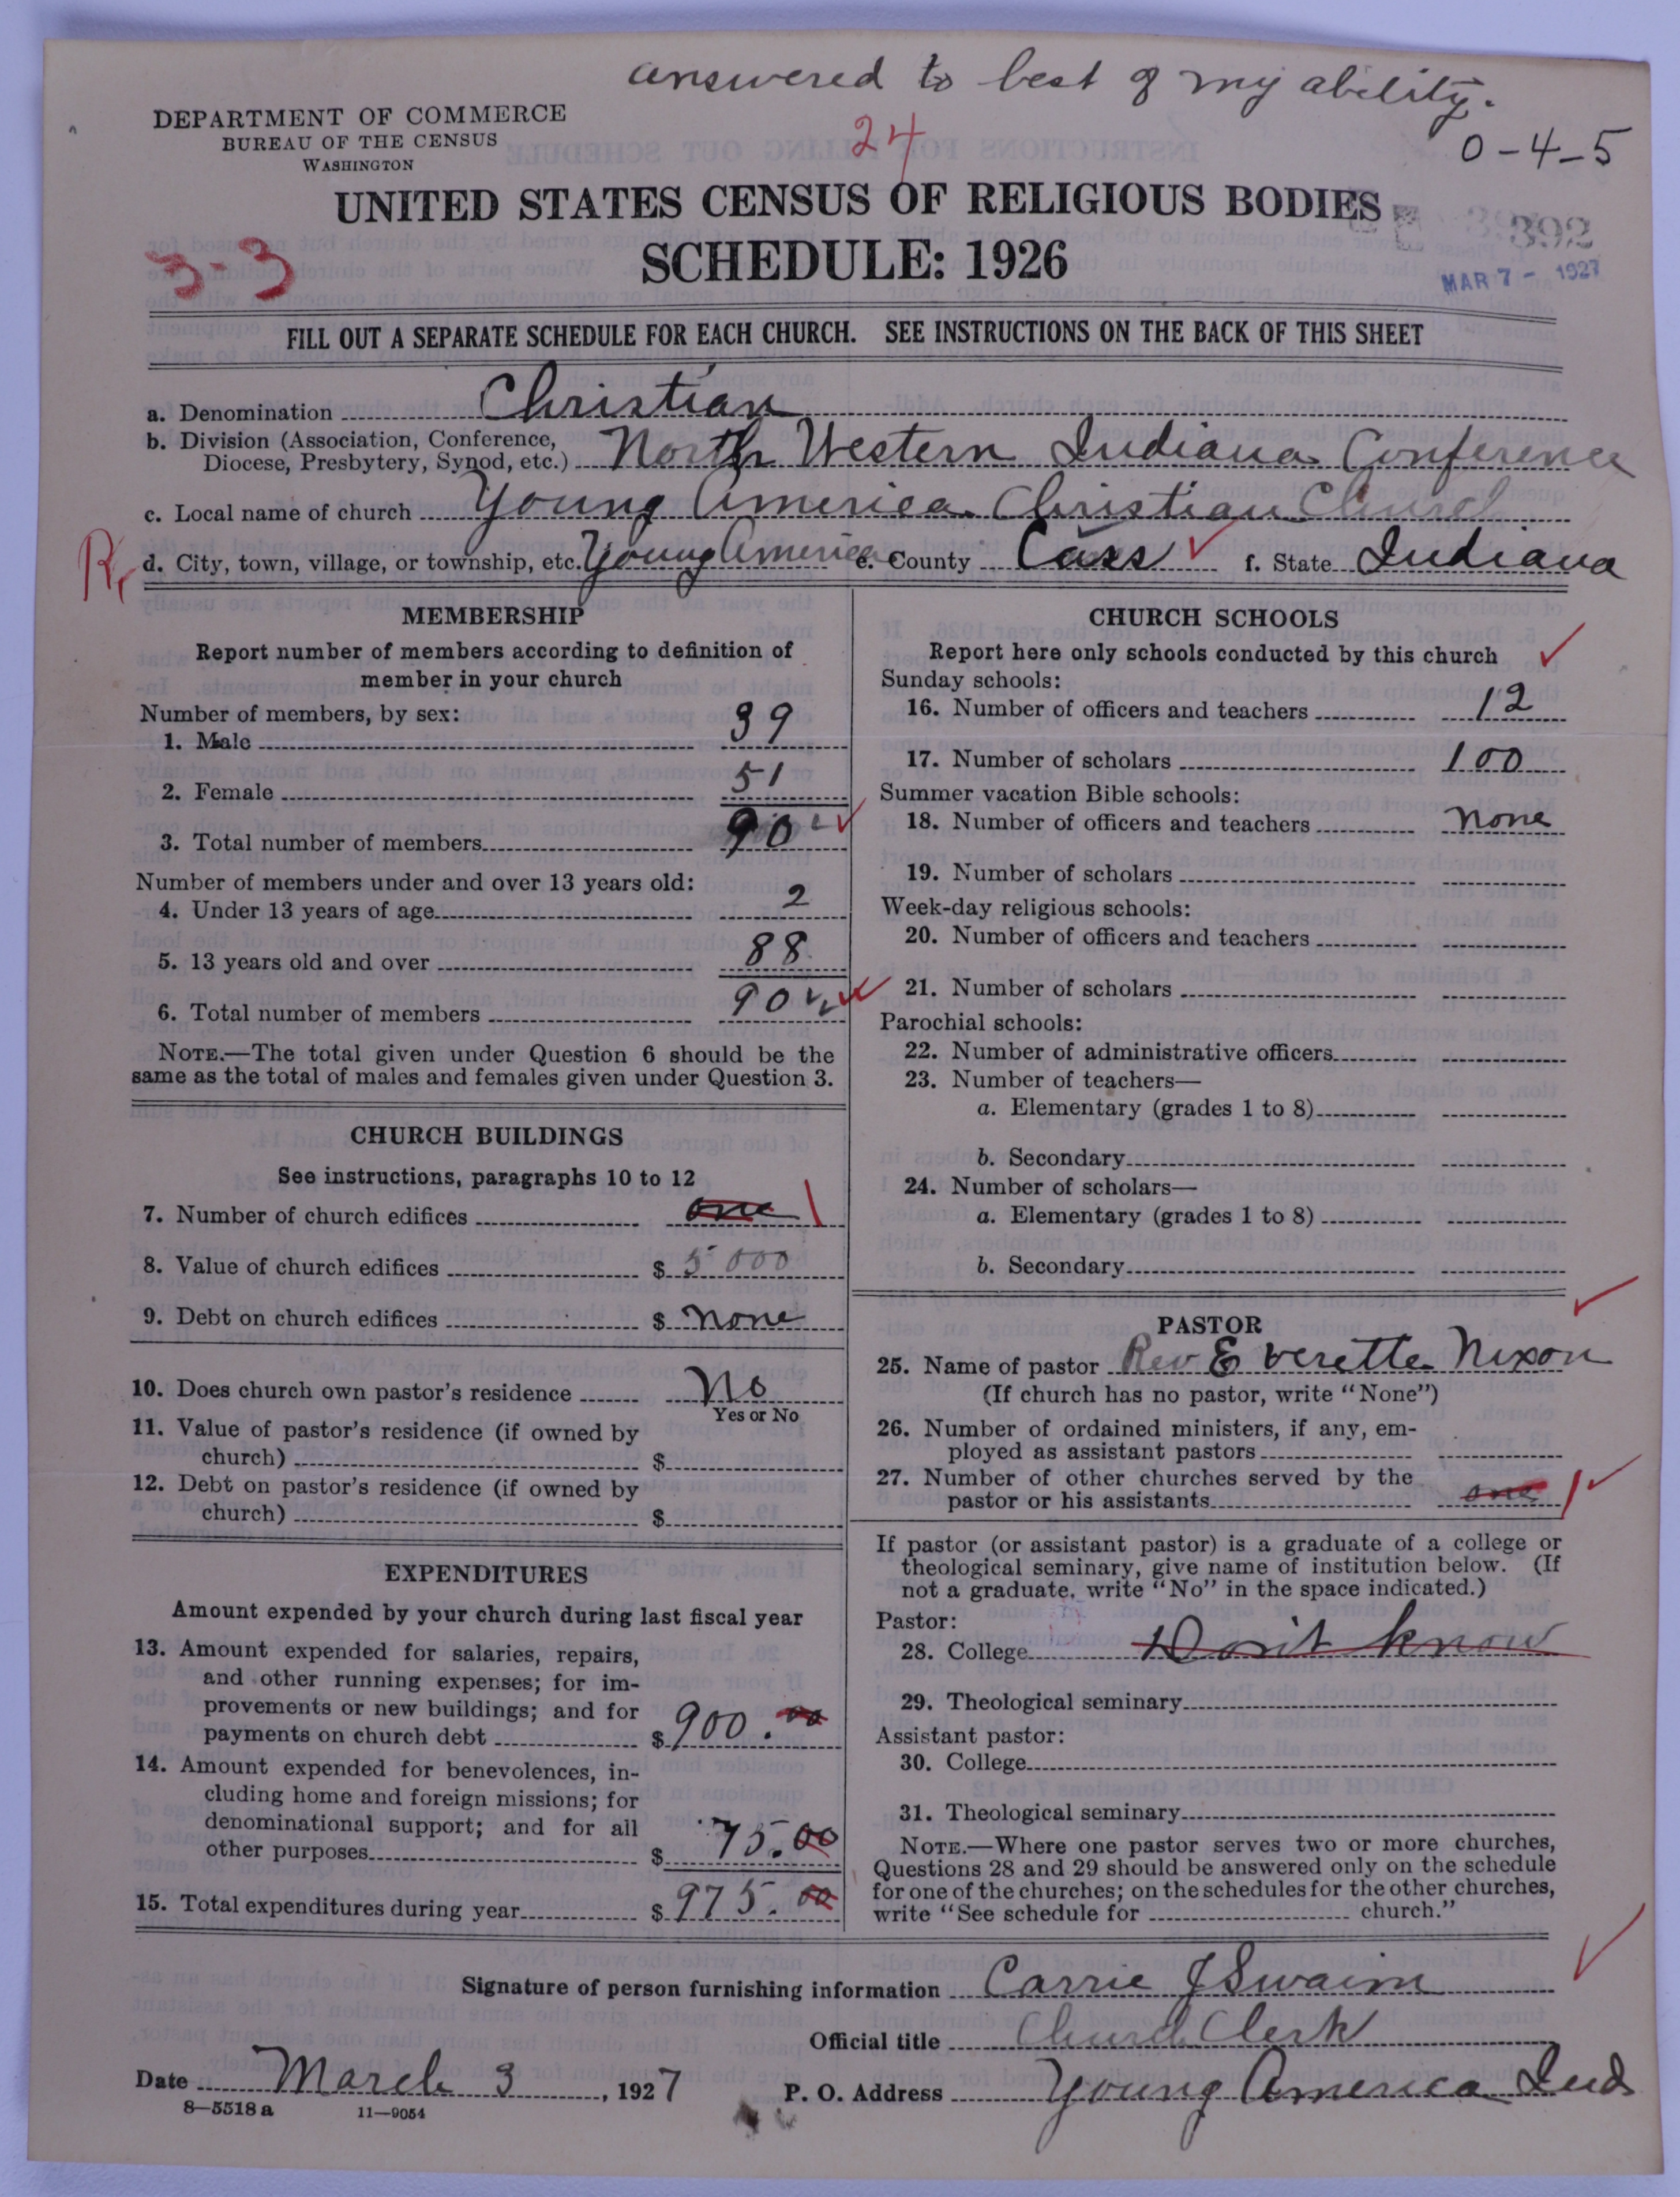 answered to best of my ability.
DEPARTMENT OF COMMERCE
BUREAU OF THE CENSUS
WASHINGTON
24
0-4-5
UNITED STATES CENSUS OF RELIGIOUS BODIES
SCHEDULE: 1926
3-3
392
MAR 7 - 1927
FILL OUT A SEPARATE SCHEDULE FOR EACH CHURCH. SEE INSTRUCTIONS ON THE BACK OF THIS SHEET
a. Denomination Christian
b. Division (Association, Conference,
Diocese, Presbytery, Synod, etc.) North Western Indiana Conference
c. Local name of church Young America Christian Church
R
d. City, town, village, or township, etc. Young America e. County Cass f. State Indiana
MEMBERSHIP
Report number of members according to definition of
member in your church
Number of members, by sex:
1. Male 39
2. Female 51
3. Total number of members 90
Number of members under and over 13 years old:
4. Under 13 years of age 2
5. 13 years old and over 88
6. Total number of members 90
NOTE.—The total given under Question 6 should be the
same as the total of males and females given under Question 3.
CHURCH BUILDINGS
See instructions, paragraphs 10 to 12
7. Number of church edifices one 1
8. Value of church edifices $ 5000
9. Debt on church edifices $ none
10. Does church own pastor's residence No
Yes or No
11. Value of pastor's residence (if owned by
church) $
12. Debt on pastor's residence (if owned by
church) $
EXPENDITURES
Amount expended by your church during last fiscal year
13. Amount expended for salaries, repairs,
and other running expenses; for im-
provements or new buildings; and for
payments on church debt $ 900.00
14. Amount expended for benevolences, in-
cluding home and foreign missions; for
denominational support; and for all
other purposes $ 75.00
15. Total expenditures during year $ 975.00
CHURCH SCHOOLS
Report here only schools conducted by this church
Sunday schools:
16. Number of officers and teachers 12
17. Number of scholars 100
Summer vacation Bible schools:
18. Number of officers and teachers none
19. Number of scholars
Week-day religious schools:
20. Number of officers and teachers
21. Number of scholars
Parochial schools:
22. Number of administrative officers
23. Number of teachers—
a. Elementary (grades 1 to 8)
b. Secondary
24. Number of scholars—
a. Elementary (grades 1 to 8)
b. Secondary
PASTOR
25. Name of pastor Rev Everette Nixon
(If church has no pastor, write "None")
26. Number of ordained ministers, if any, em-
ployed as assistant pastors
27. Number of other churches served by the
pastor or his assistants one 1
If pastor (or assistant pastor) is a graduate of a college or
theological seminary, give name of institution below. (If
not a graduate, write "No" in the space indicated.)
Pastor:
28. College Don't know
29. Theological seminary
Assistant pastor:
30. College
31. Theological seminary
NOTE.—Where one pastor serves two or more churches,
Questions 28 and 29 should be answered only on the schedule
for one of the churches; on the schedules for the other churches,
write "See schedule for church."
Signature of person furnishing information Carrie J Swaim
Official title Church Clerk
Date March 3, 1927 P. O. Address Young America Ind
8—5518a 11—9054